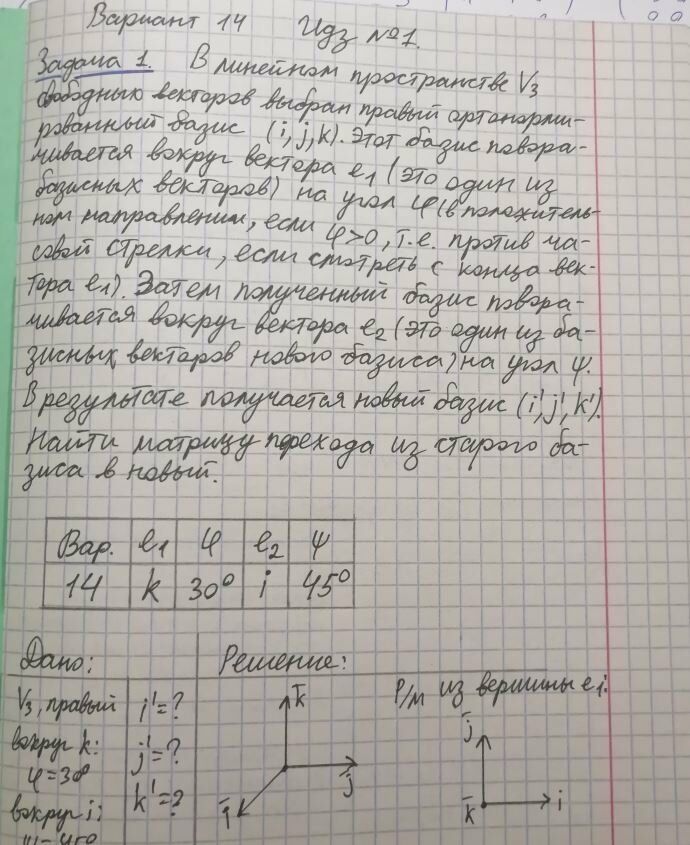 Вариант 14 Идз №1.
Задача 1. В линейном пространстве V3
свободных векторов выбран правый ортонорми-
рованный базис (i,j,k). Этот базис повора-
чивается вокруг вектора e1 (это один из
базисных векторов) на угол φ (в положитель-
ном направлении, если φ>0, т.е. против ча-
совой стрелки, если смотреть с конца век-
тора e1). Затем полученный базис повора-
чивается вокруг вектора e2 (это один из ба-
зисных векторов нового базиса) на угол ψ.
В результате получается новый базис (i',j',k').
Найти матрицу перехода из старого ба-
зиса в новый.
Вар. e1 φ e2 ψ
14 k 30° i 45°
Дано: Решение:
V3, правый i'=?
вокруг k: j'=?
φ=30° k'=?
вокруг i:
ψ=45°
k
j
i
Р/м из вершины e1:
j
k i